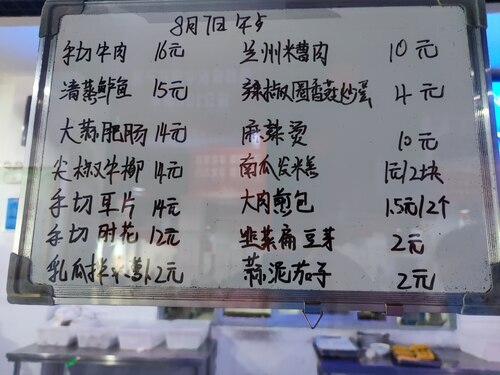 8月7日 午点
手切牛肉 16元 兰州糟肉 10元
清蒸鲈鱼 15元 辣椒圆香菇炒蛋 4元
大蒜肥肠 14元 麻辣烫 10元
尖椒牛柳 14元 南瓜发米糕 1元/2块
手切耳片 14元 大肉煎包 1.5元/2个
手切肘花 12元 韭菜扁豆芽 2元
乳瓜拌 12元 蒜泥茄子 2元